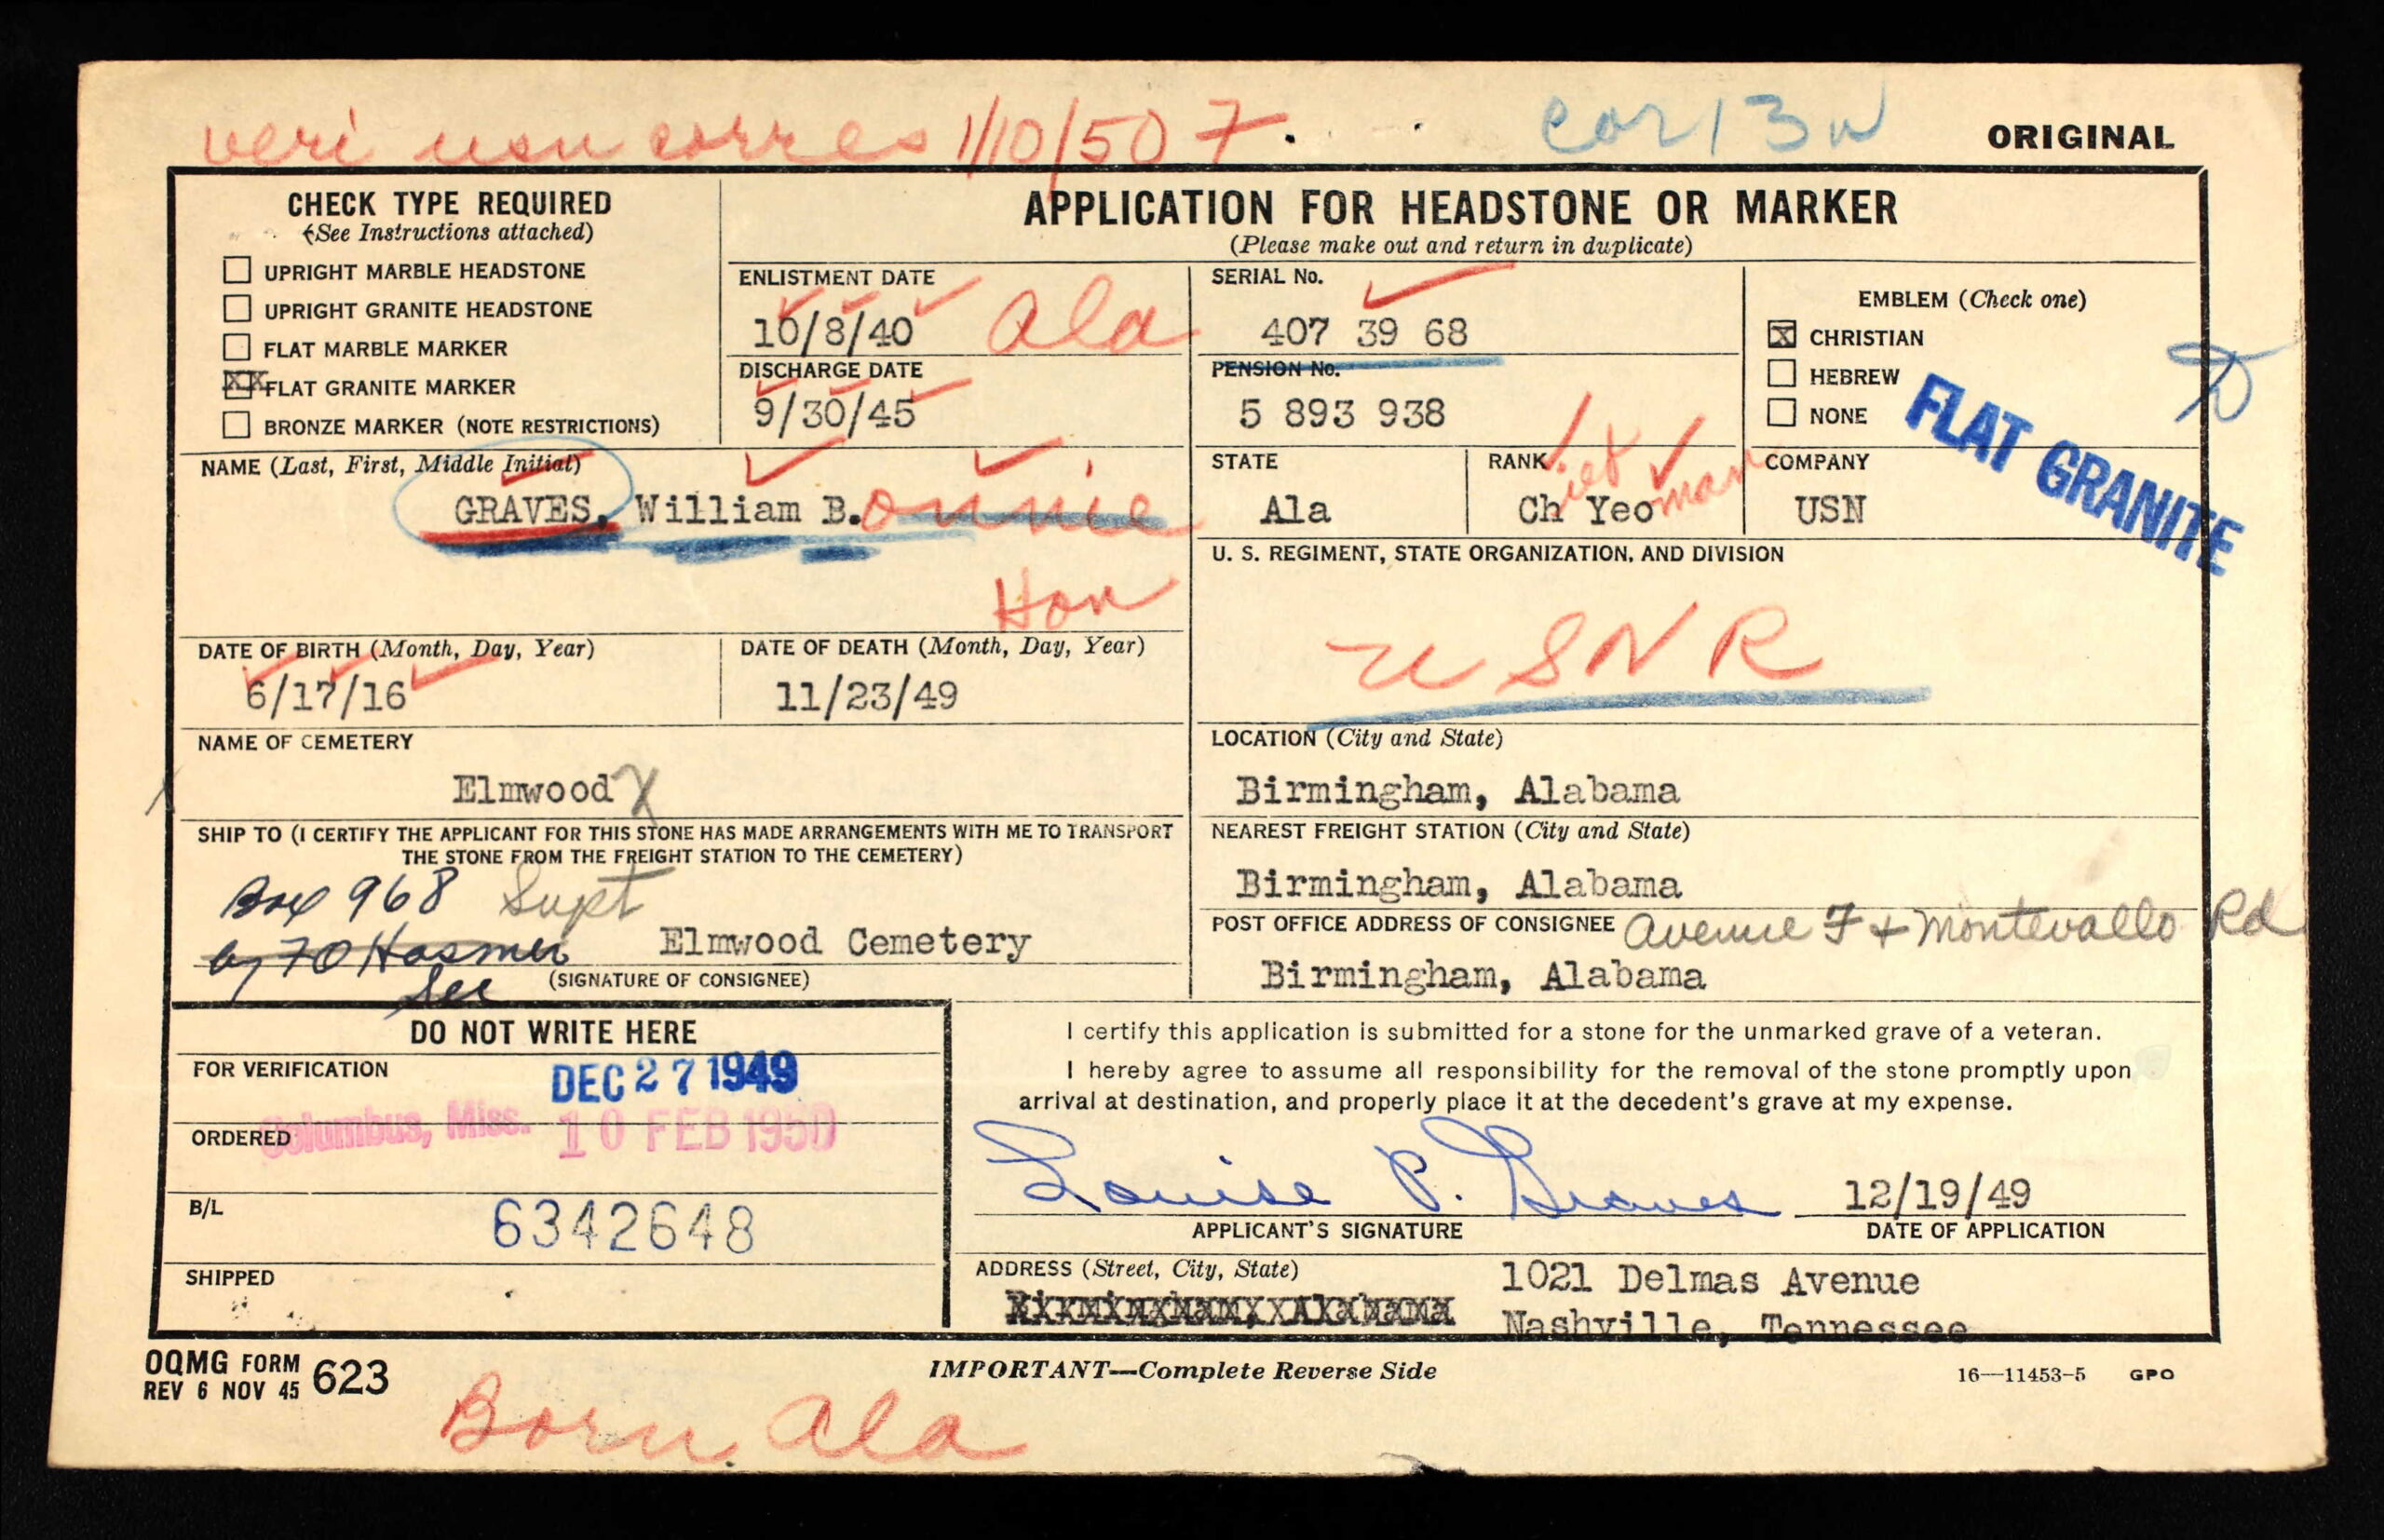 veri usn corres 1/10/50 7.
cor 13 w
ORIGINAL
CHECK TYPE REQUIRED
(See Instructions attached)
UPRIGHT MARBLE HEADSTONE
UPRIGHT GRANITE HEADSTONE
FLAT MARBLE MARKER
XX FLAT GRANITE MARKER
BRONZE MARKER (NOTE RESTRICTIONS)
APPLICATION FOR HEADSTONE OR MARKER
(Please make out and return in duplicate)
ENLISTMENT DATE
10/8/40 Ala
DISCHARGE DATE
9/30/45
SERIAL No.
407 39 68
PENSION No.
5 893 938
EMBLEM (Check one)
X CHRISTIAN
HEBREW
NONE
FLAT GRANITE
NAME (Last, First, Middle Initial)
GRAVES, William B.onnie
Hon
STATE
Ala
RANK
Chief Yeoman
COMPANY
USN
U. S. REGIMENT, STATE ORGANIZATION, AND DIVISION
USNR
DATE OF BIRTH (Month, Day, Year)
6/17/16
DATE OF DEATH (Month, Day, Year)
11/23/49
NAME OF CEMETERY
Elmwood X
LOCATION (City and State)
Birmingham, Alabama
SHIP TO (I CERTIFY THE APPLICANT FOR THIS STONE HAS MADE ARRANGEMENTS WITH ME TO TRANSPORT
THE STONE FROM THE FREIGHT STATION TO THE CEMETERY)
Box 968 Supt
by Elmwood Cemetery
Sec (SIGNATURE OF CONSIGNEE)
NEAREST FREIGHT STATION (City and State)
Birmingham, Alabama
POST OFFICE ADDRESS OF CONSIGNEE Avenue F + Montevallo Rd
Birmingham, Alabama
DO NOT WRITE HERE
FOR VERIFICATION
DEC 27 1949
Columbus, Miss. 10 FEB 1950
ORDERED
B/L
6342648
SHIPPED
I certify this application is submitted for a stone for the unmarked grave of a veteran.
I hereby agree to assume all responsibility for the removal of the stone promptly upon
arrival at destination, and properly place it at the decedent's grave at my expense.
Louise P. Graves 12/19/49
APPLICANT'S SIGNATURE DATE OF APPLICATION
ADDRESS (Street, City, State)
Birmingham, Alabama
1021 Delmas Avenue
Nashville, Tennessee
OQMG FORM 623
REV 6 NOV 45
IMPORTANT—Complete Reverse Side
16—11453-5 GPO
Born Ala